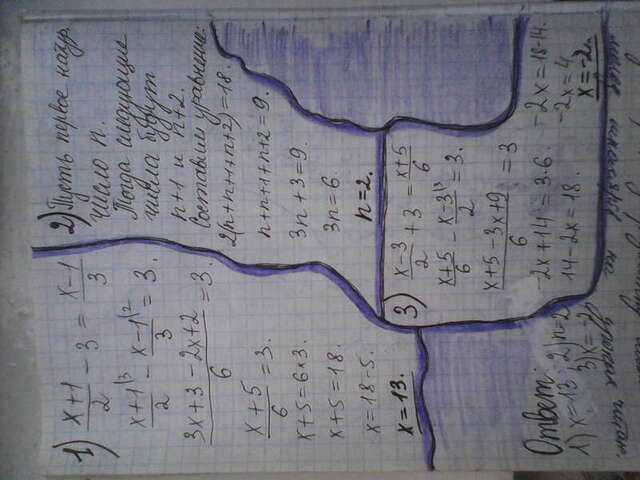 1) (x+1)/2 - 3 = (x-1)/3
(x+1|3)/2 - (x-1|2)/3 = 3.
(3x+3-2x+2)/6 = 3.
(x+5)/6 = 3.
x+5=6×3.
x+5=18.
x=18-5.
x=13.
2) Пусть первое натур.
число n.
Тогда следующие
числа будут
n+1 и n+2.
Составим уравнение:
2(n+n+1+n+2)=18.
n+n+1+n+2=9.
3n+3=9.
3n=6.
n=2.
3) (x-3)/2 + 3 = (x+5)/6
(x+5)/6 - (x-3|3)/2 = 3.
(x+5-3x+9)/6 = 3
-2x+14=3·6.
14-2x=18.
-2x=18-14.
-2x=4
x=-2.
Ответ:
1) x=13; 2) n=2
3) x=-2